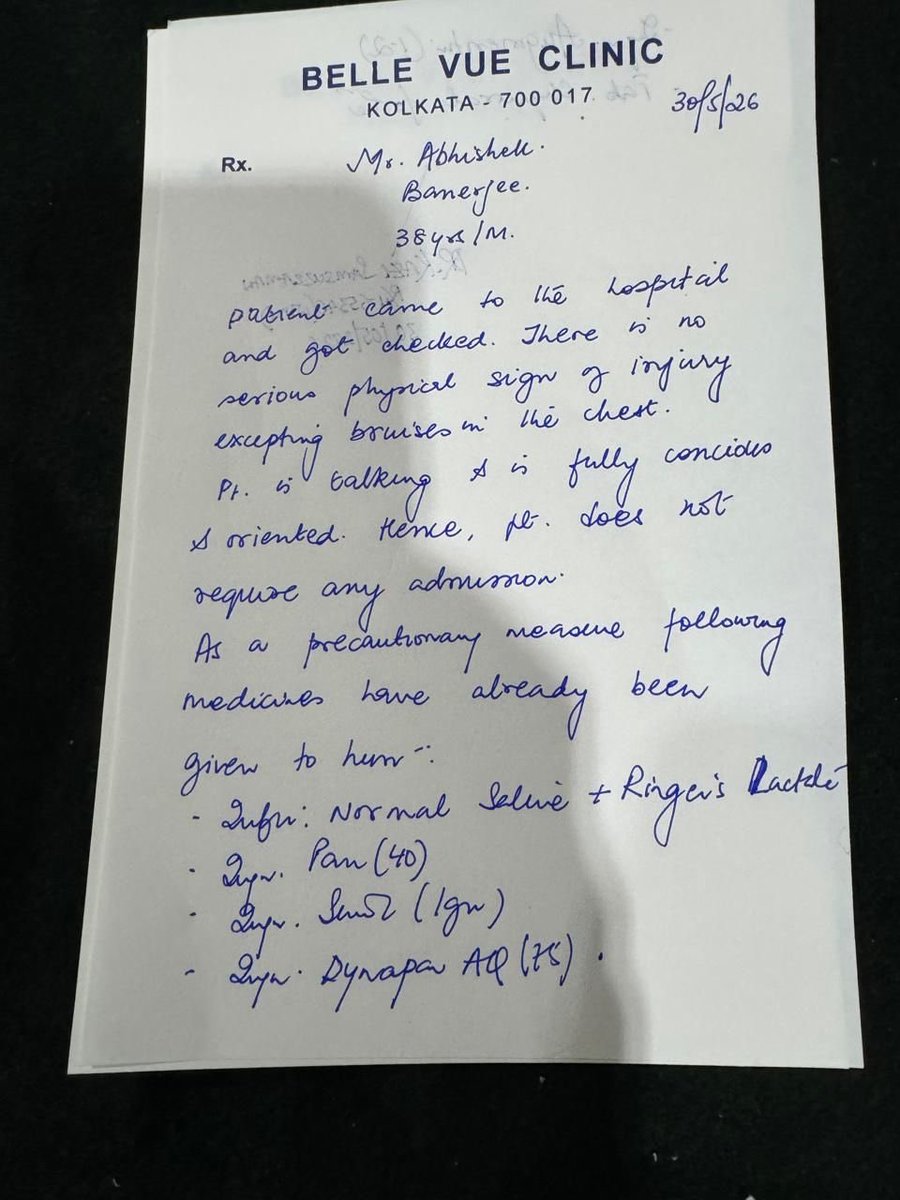 BELLE VUE CLINIC
KOLKATA - 700 017
30/5/26
Rx.
Mr. Abhishek
Banerjee.
38 yrs/M.
patient came to the hospital
and got checked. There is no
serious physical sign of injury
excepting bruises in the chest.
Pt. is talking & is fully concides
& oriented. Hence, pt. does not
require any admission.
As a precautionary measure following
medicines have already been
given to him :
- Infn: Normal Saline + Ringer's Lactate
- Inj. Pan (40)
- Inj. (1gm)
- Inj. Dynapar AQ (75).